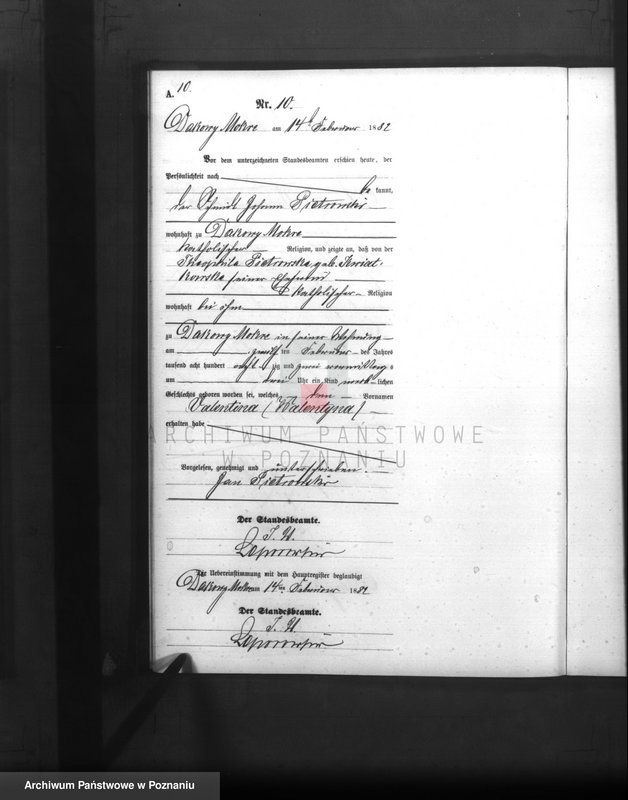 10.
A.
Nr. 10.
Dakowy Mokre am 14t Februar 1882
Vor dem unterzeichneten Standesbeamten erschien heute, der
Persönlichkeit nach be kannt,
der Schmidt Johann Pietrowski
wohnhaft zu Dakowy Mokre
katholischer Religion, und zeigte an, daß von der
Theophila Pietrowska geb. Kwiat-
kowska seiner Ehefrau
katholischer Religion
wohnhaft bei ihm
zu Dakowy Mokre in seiner Wohnung
am zwölf ten Februar des Jahres
tausend acht hundert acht zig und zwei Vormittags
um drei Uhr ein Kind weib lichen
Geschlechts geboren worden sei, welches den Vornamen
Valentina (Walentyna)
erhalten habe
ARCHIWUM PAŃSTWOWE
W POZNANIU
Vorgelesen, genehmigt und unterschrieben.
Jan Pietrowski
Der Standesbeamte.
Die Uebereinstimmung mit dem Hauptregister beglaubigt
Dakowy Mokre am 14ten Februar 1882
Der Standesbeamte.
Archiwum Państwowe w Poznaniu